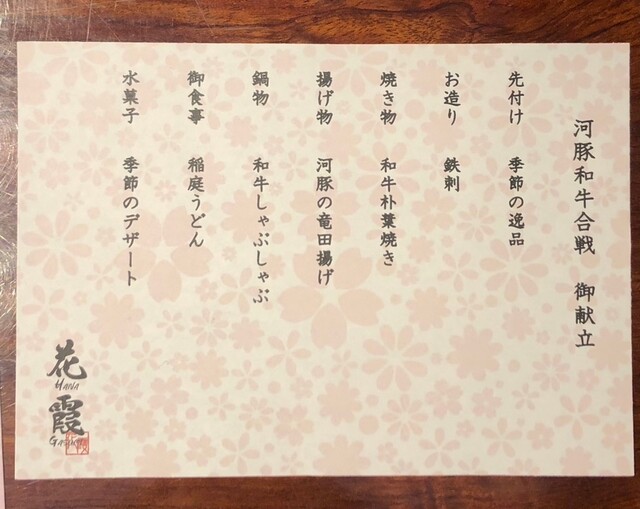 河豚和牛合戦　御献立
先付け　季節の逸品
お造り　鉄刺
焼き物　和牛朴葉焼き
揚げ物　河豚の竜田揚げ
鍋物　和牛しゃぶしゃぶ
御食事　稲庭うどん
水菓子　季節のデザート
花
HANA
霞